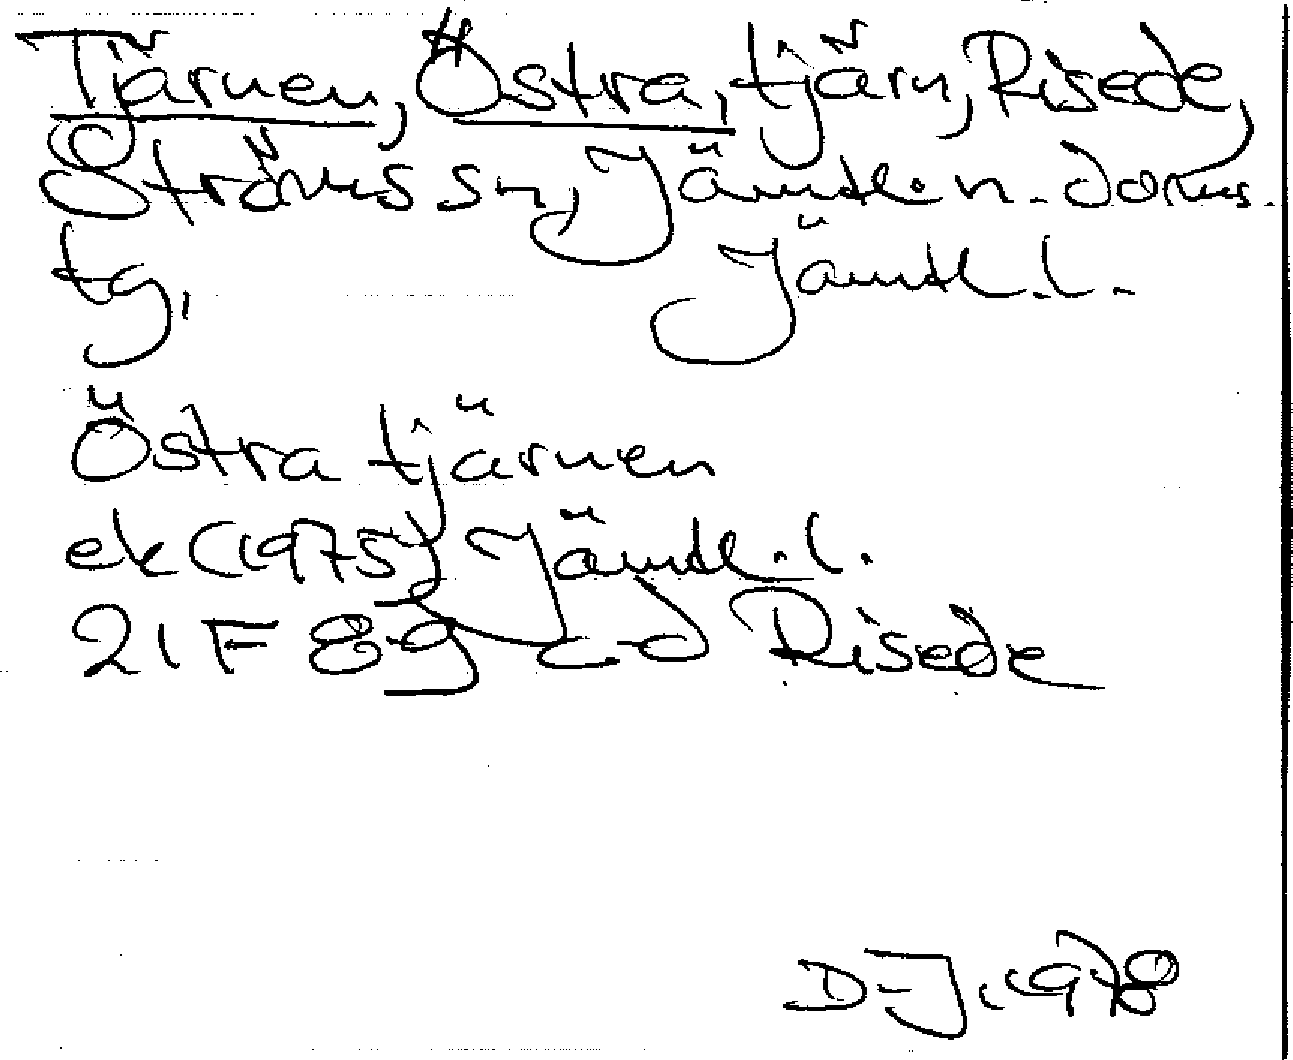 Tjärnen, Östra, tjärn, Risede,
Ströms sn, Jämtl. n. doms.
tg, Jämtl. l.
Östra tjärnen
ek (1975) Jämtl. l.
21 F 8-9 c-d Risede
D-J. 1978